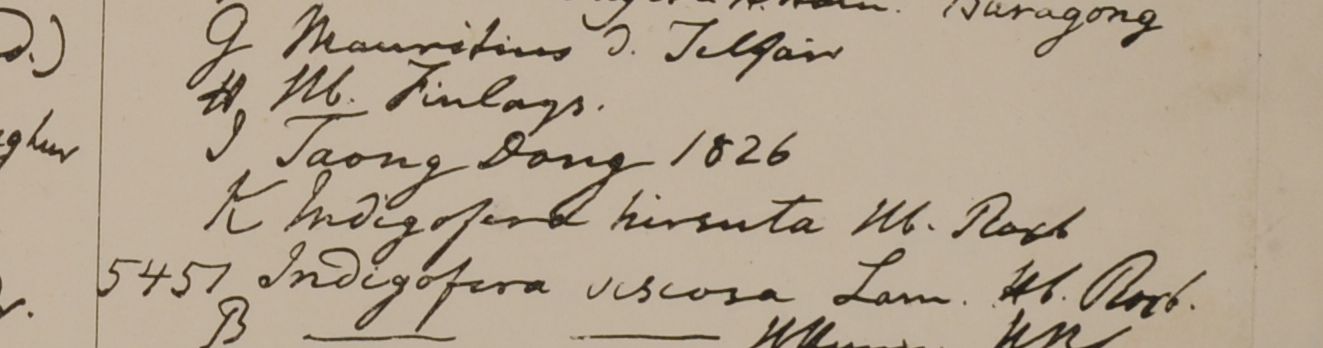 Baragong
d.) G Mauritius d. Telfair
H Hb. Finlays.
I Taong Dong 1826
K Indigofera hirsuta Hb. Roxb
5451 Indigofera viscosa Lam. Hb. Roxb.
B